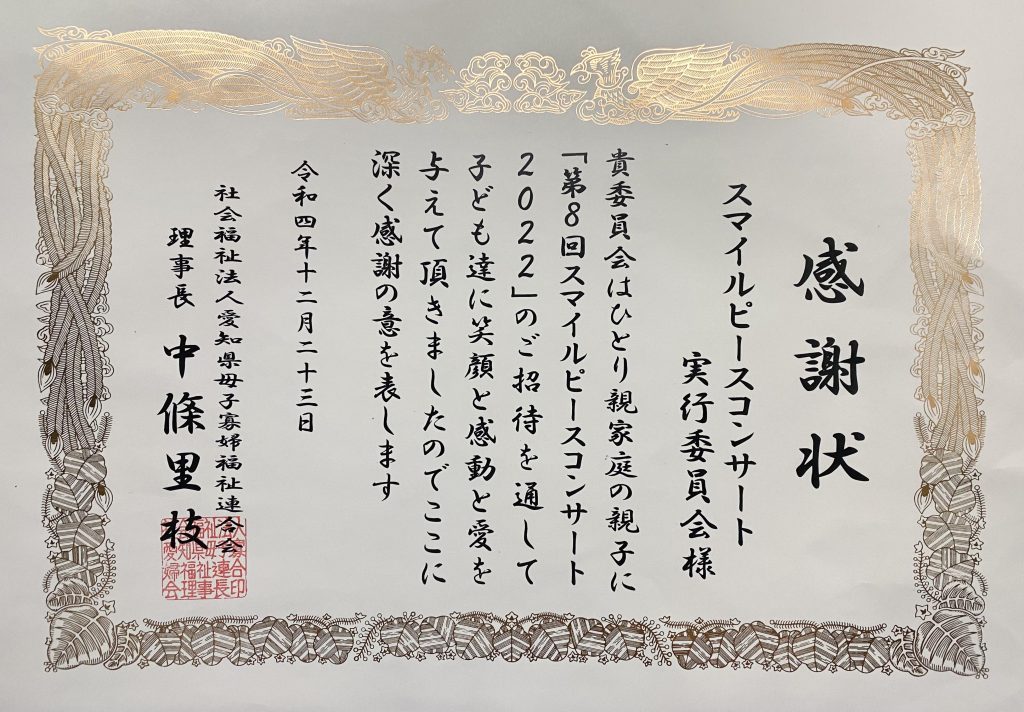 感謝状
スマイルピースコンサート
実行委員会様
貴委員会はひとり親家庭の親子に
「第8回スマイルピースコンサート
2022」のご招待を通して
子ども達に笑顔と感動と愛を
与えて頂きましたのでここに
深く感謝の意を表します
令和四年十二月二十三日
社会福祉法人愛知県母子寡婦福祉連合会
理事長 中條里枝